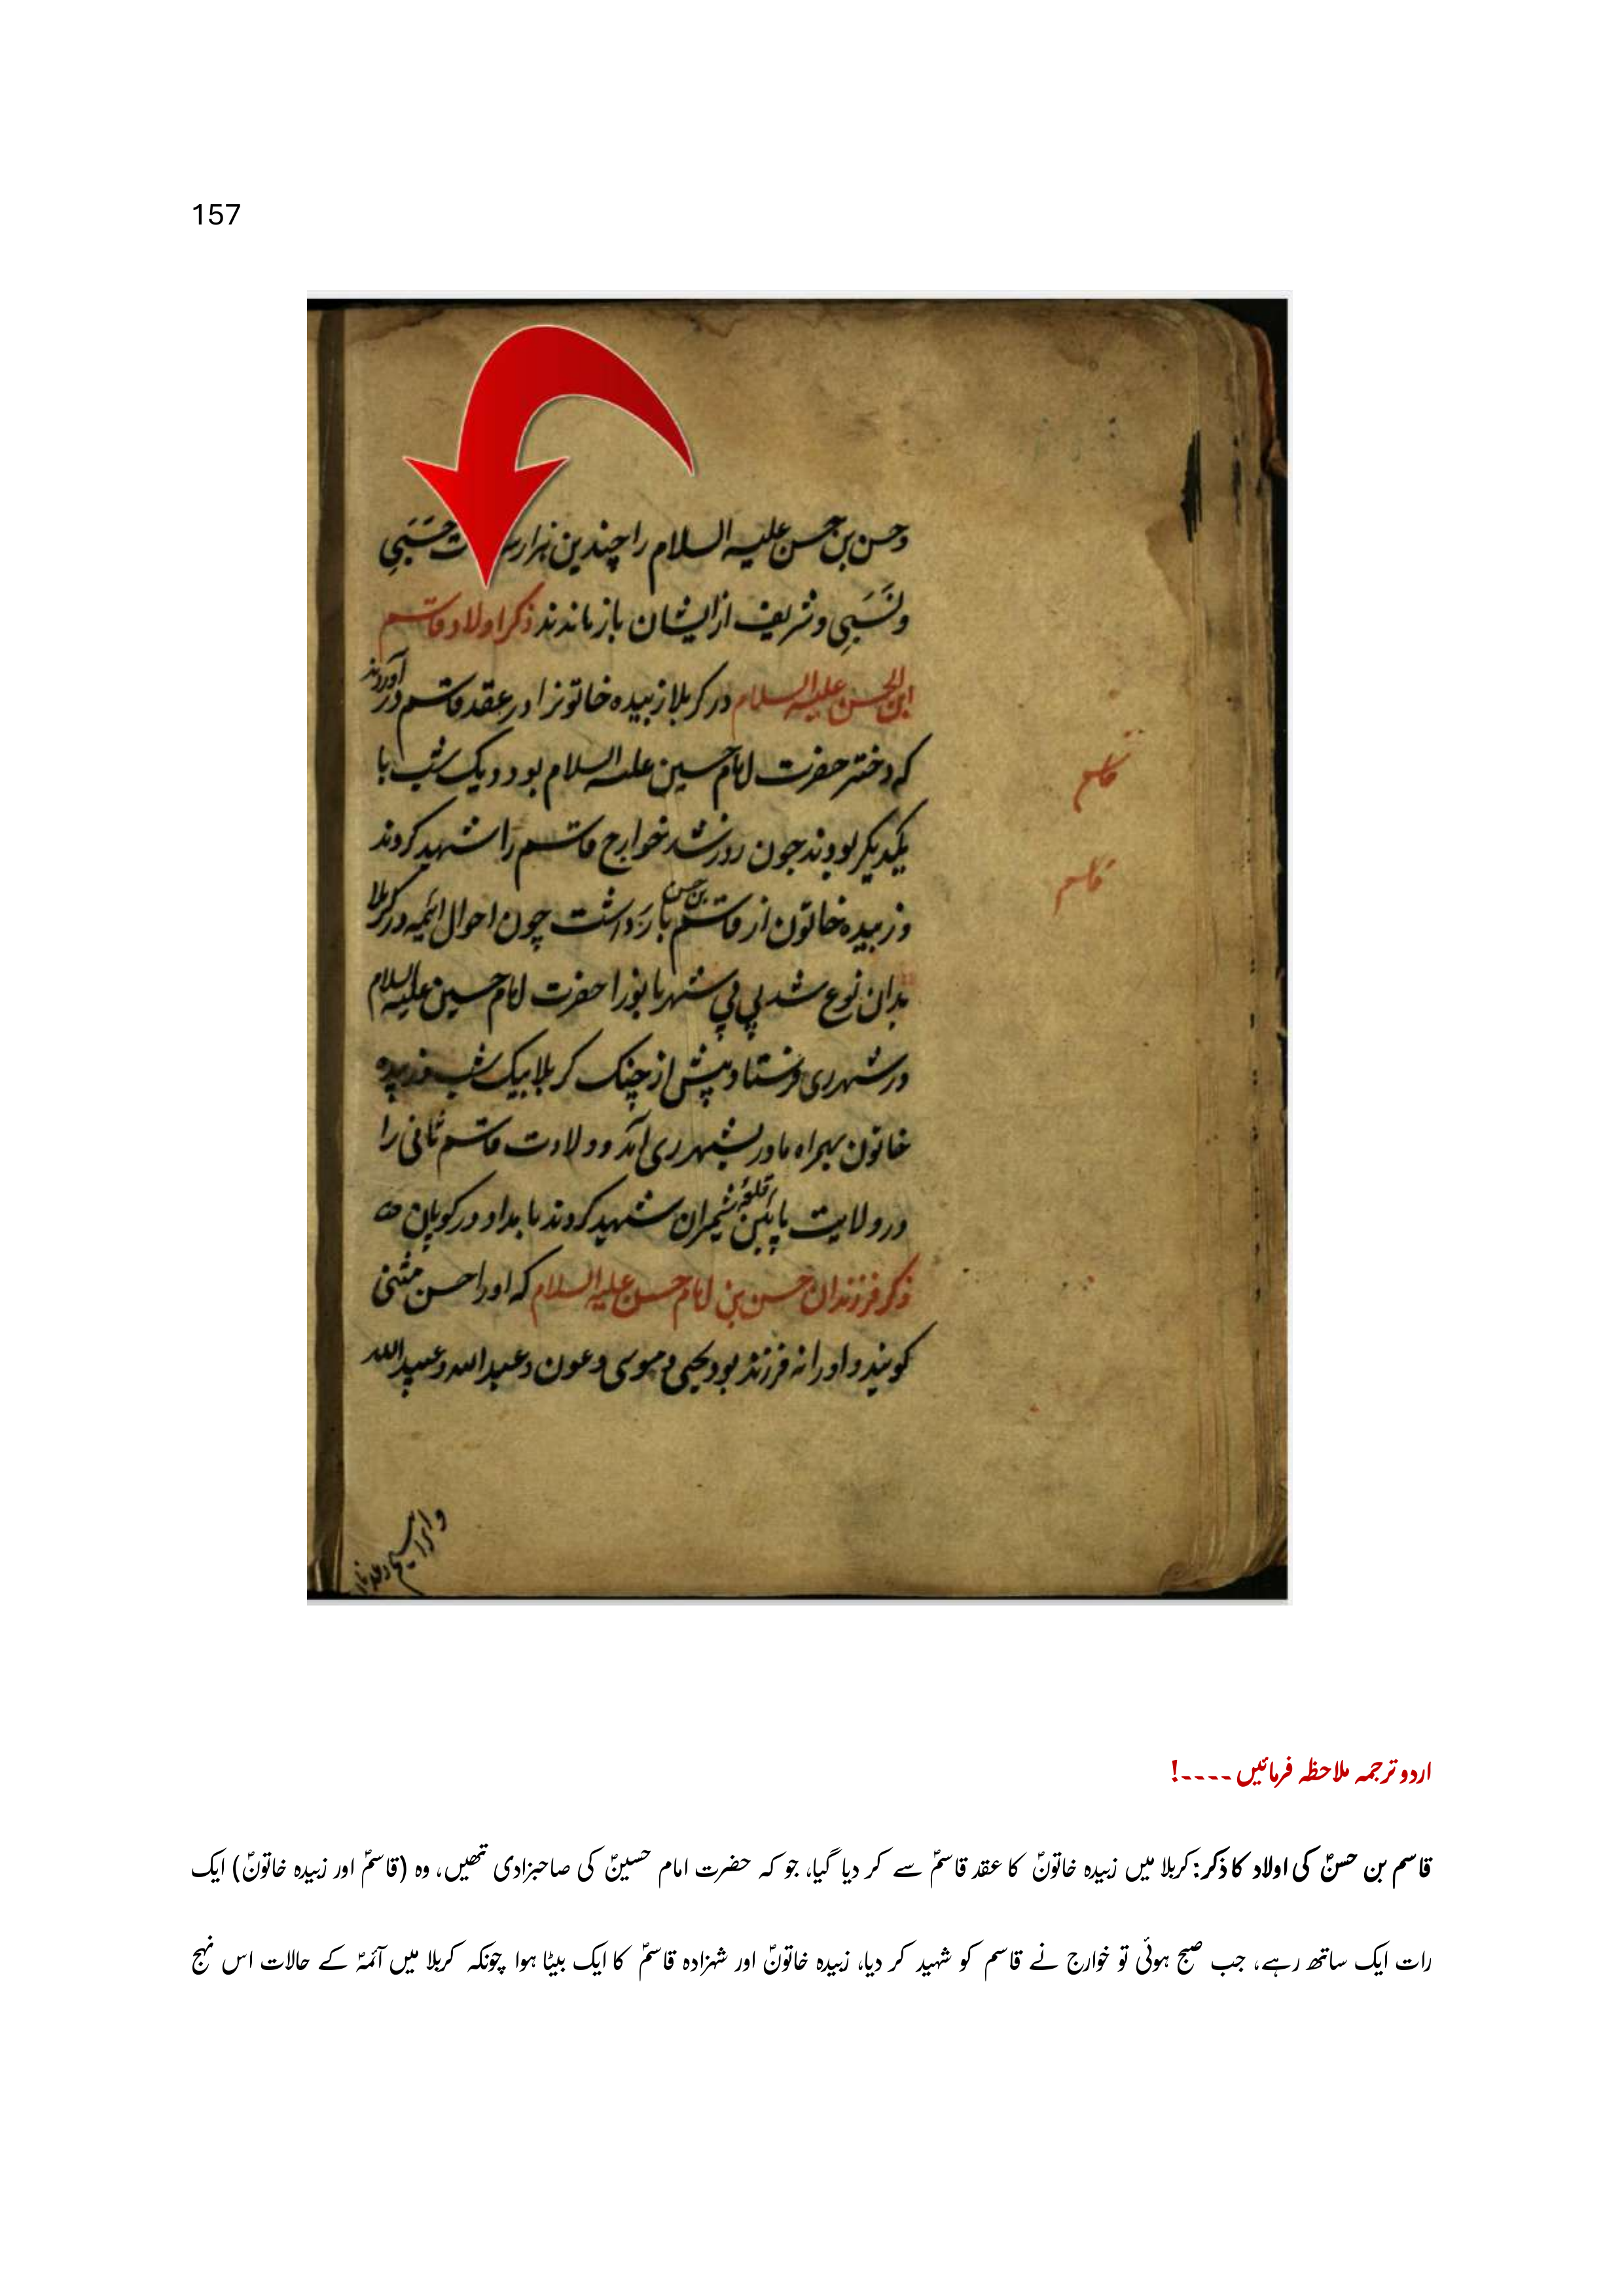 157
وحسن بن حسن علیه السلام را چندین هزار حَسَبِی
ونَسَبِی وشریف از ایشان باز ماندند ذکر اولاد قاسم
ابن الحسن علیه السلام در کربلا زبیده خاتونرا در عقد قاسم در آوردند
که دختر حضرت امام حسین علیه السلام بود و یک شب با
یکدیکر بودند چون روز شد خوارج قاسم را شهید کردند
وزبیده خاتون از قاسم بن حسن بار داشت چون احوال ائمه در کربلا
بدان نوع شد بی بی شهربانورا حضرت امام حسین علیه السلام
در شهر ری فرستاد پیش از جنک کربلا بیک شب وزبیده
خاتون بهمراه مادر بشهر ری آمد و ولادت قاسم ثانی را
در ولایت پایین قلعه شمیران شهید کردند بامداد در کوهان
ذکر فرزندان حسن بن امام حسن علیه السلام که اورا حسن مثنی
کویند و اورا نه فرزند بود یحیی و موسی و عون و عبدالله و عبیدالله
قاسم
قاسم
اردو ترجمہ ملاحظہ فرمائیں ----!
قاسم بن حسنؑ کی اولاد کا ذکر: کربلا میں زبیدہ خاتونؑ کا عقد قاسمؑ سے کر دیا گیا، جو کہ حضرت امام حسینؑ کی صاحبزادی تھیں، وہ (قاسمؑ اور زبیدہ خاتونؑ) ایک
رات ایک ساتھ رہے، جب صبح ہوئی تو خوارج نے قاسم کو شہید کر دیا، زبیدہ خاتونؑ اور شہزادہ قاسمؑ کا ایک بیٹا ہوا چونکہ کربلا میں آئمہؑ کے حالات اس نہج